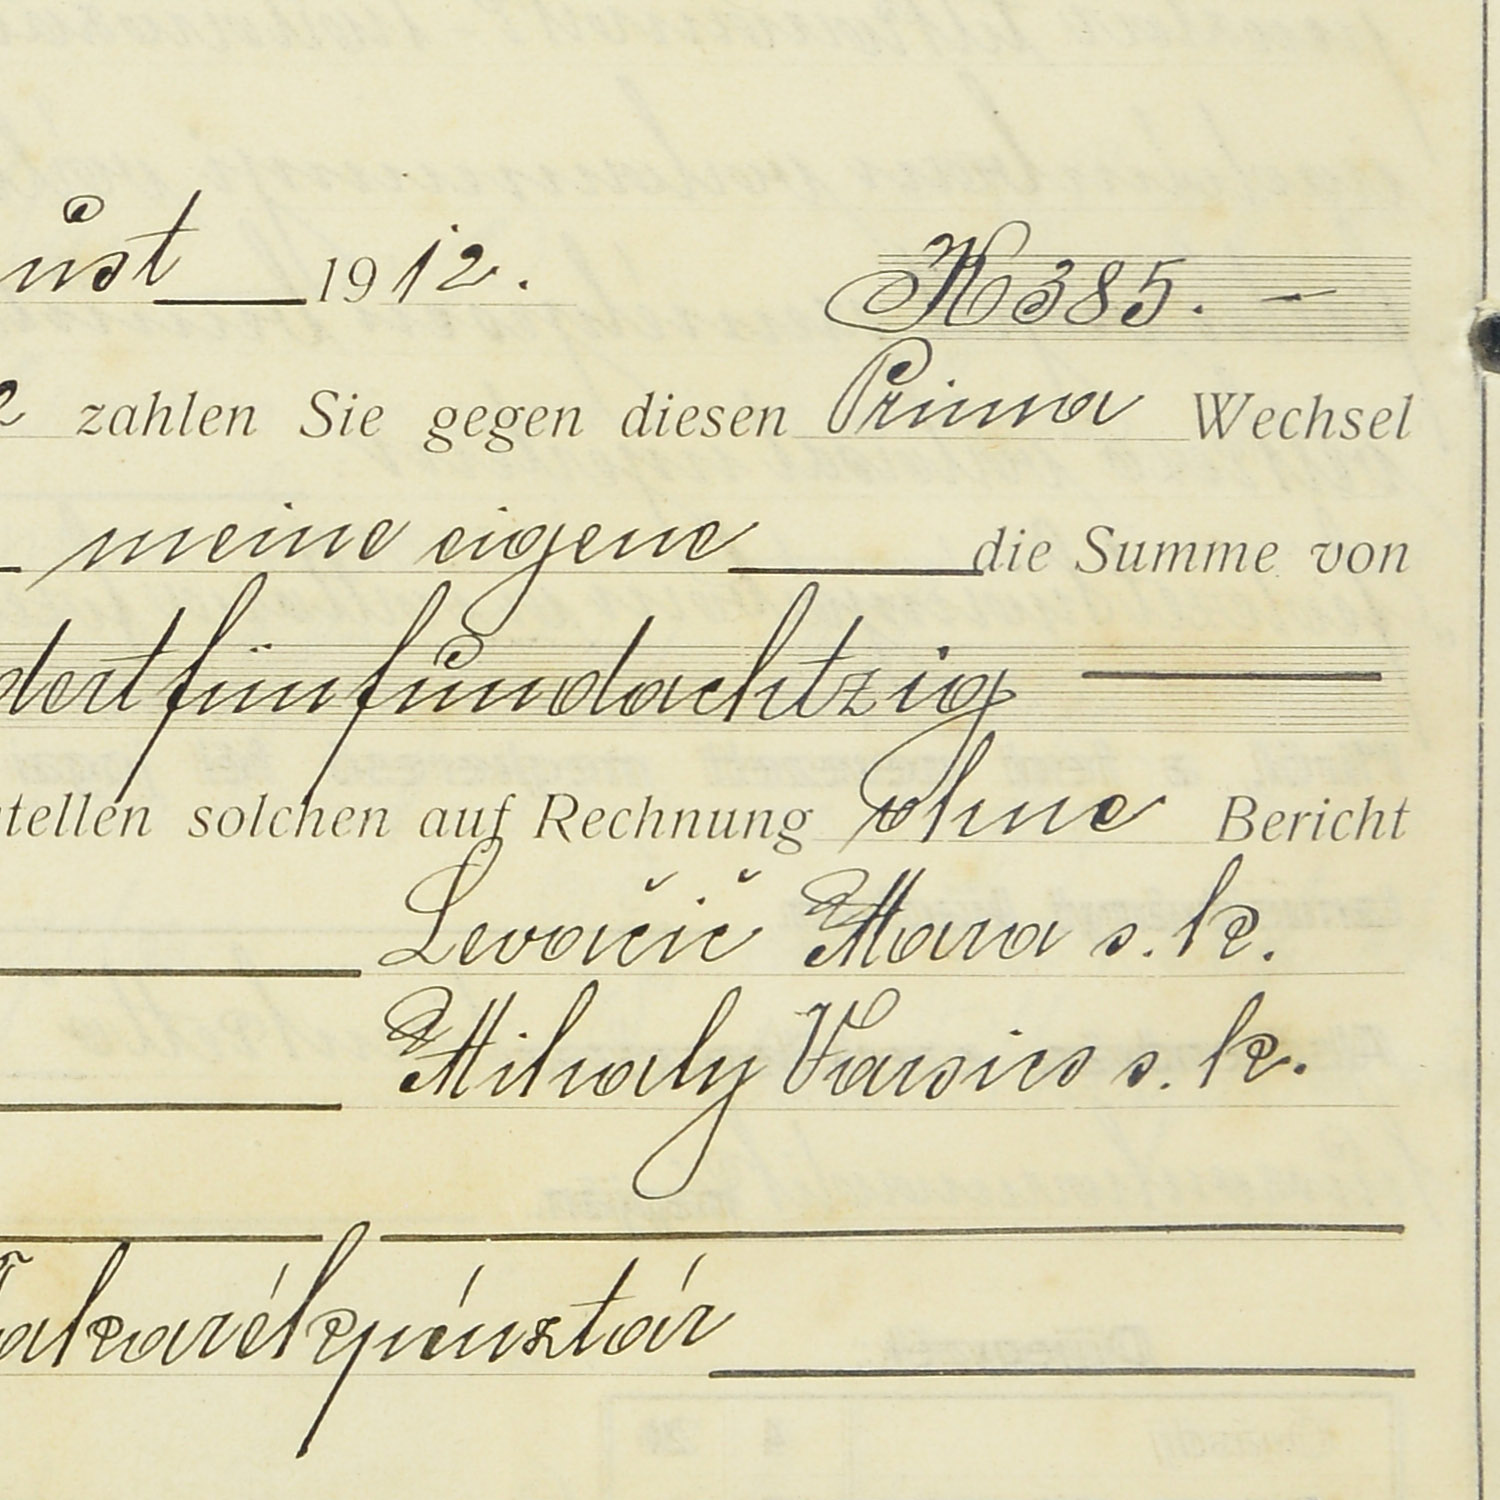 ust 1912. K 385. —
zahlen Sie gegen diesen Prima Wechsel
meine eigene die Summe von
dertfünfundachtzig
stellen solchen auf Rechnung ohne Bericht
Levačič Mara s. k.
Mihaly Varsics s. k.
akarékpénztár